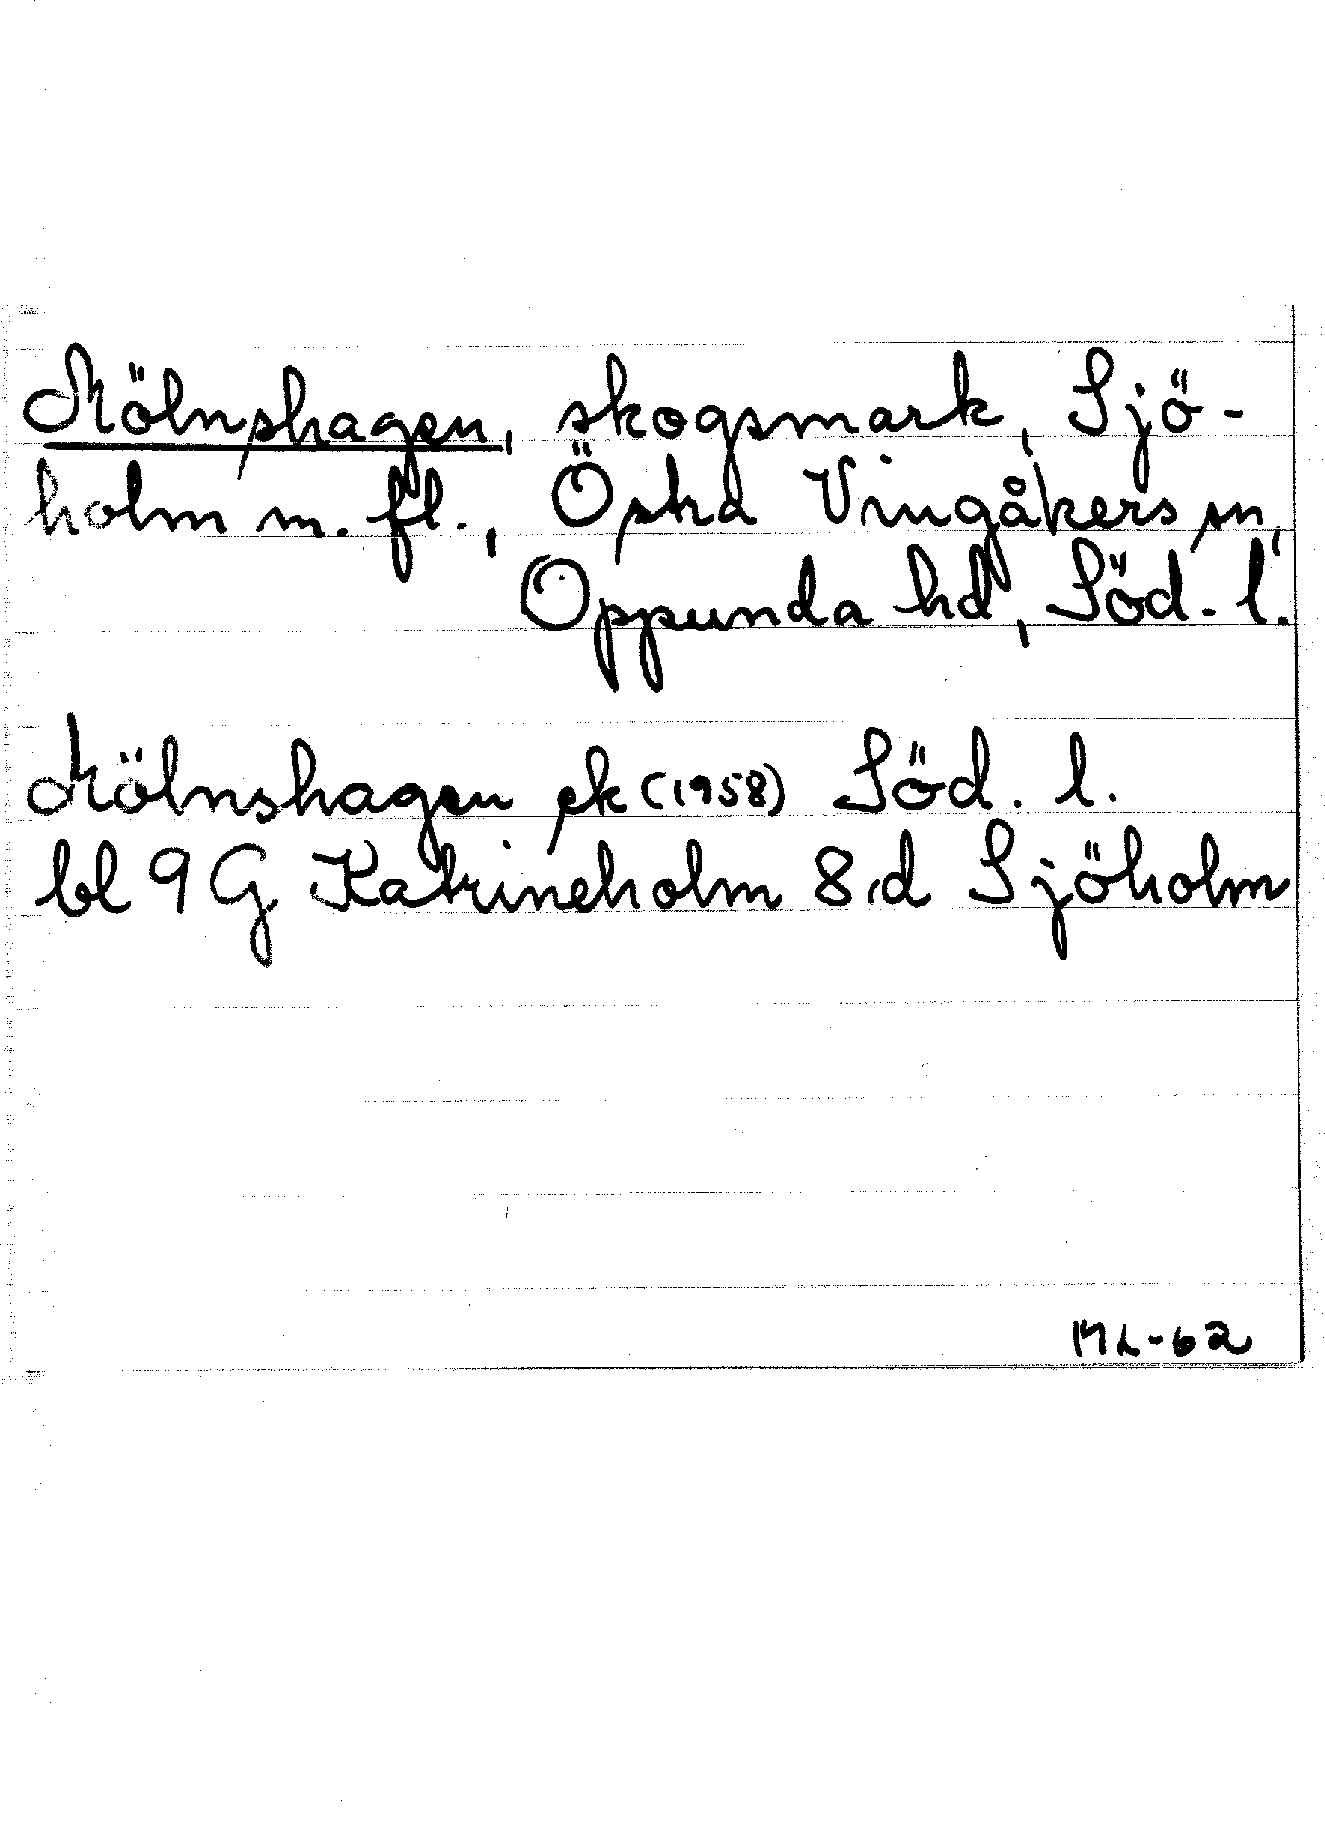 Mölnshagen, skogsmark, Sjö-
holm m. fl., Östra Vingåkers sn,
Oppunda hd, Söd. l.
Mölnshagen ek (1958) Söd. l.
bl 9 G Katrineholm 8 d Sjöholm
ML-62